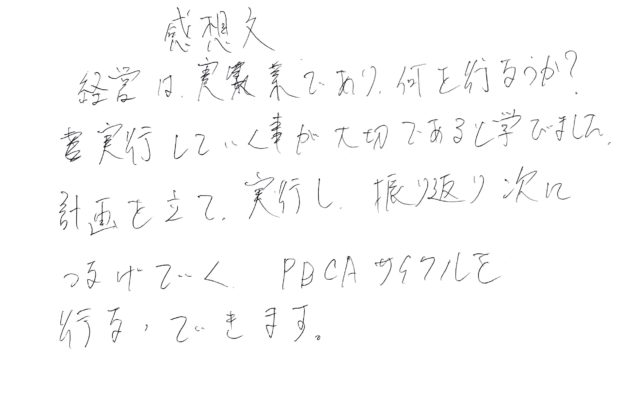 感想文
経営は、実業であり、何を行なうか?
実行していく事が大切であると学びました。
計画を立て、実行し、振り返り次に
つなげていく PDCAサイクルを
行なっていきます。